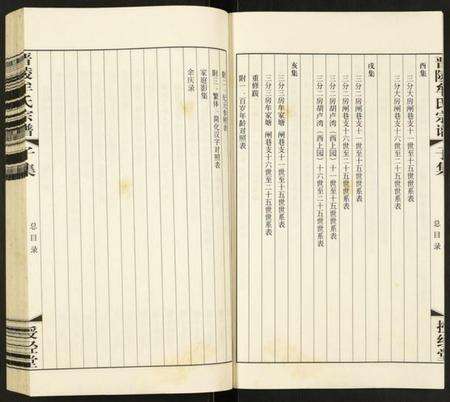 酉集
三分大房闸巷支十一世至十五世世系表
三分大房闸巷支十六世至二十五世世系表
戌集
三分二房闸巷支十一世至十五世世系表
三分二房闸巷支十六世至二十五世世系表
三分二房胡卢湾（西上园）十一世至十五世世系表
三分二房胡卢湾（西上园）十六世至二十五世世系表
亥集
三分三房牟家塘 闸巷支十一世至十五世世系表
三分三房牟家塘 闸巷支十六世至二十五世世系表
重修跋
附一：百岁年龄对照表
附三：繁体、简化汉字对照表
家庭影集
余庆录
晋陵牟氏宗谱
子集
总目录
授经堂
晋陵牟氏宗谱
子集
总目录
授经堂